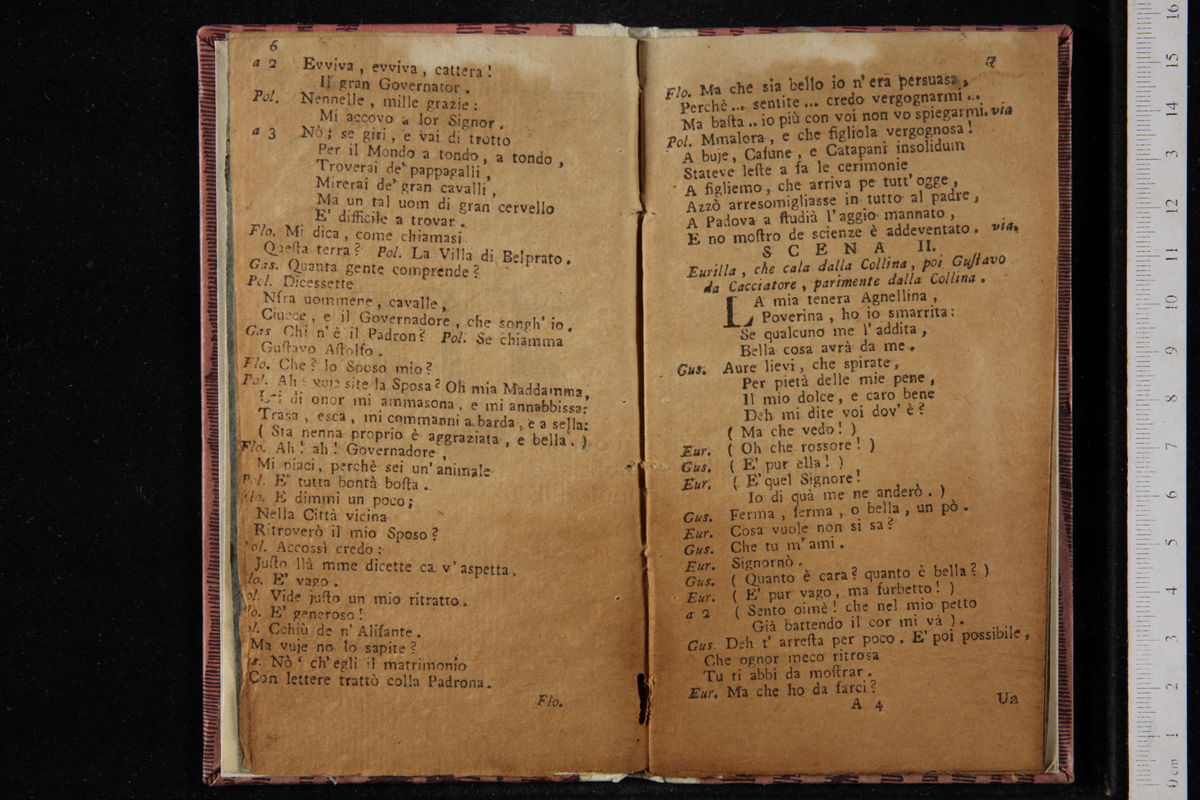 6
a 2 Evviva, evviva, cattera!
Il gran Governator.
Pol. Nennelle, mille grazie:
Mi accovo a lor Signor.
a 3 Nò; se giri, e vai di trotto
Per il Mondo a tondo, a tondo,
Troverai de' pappagalli,
Mirerai de' gran cavalli,
Ma un tal uom di gran cervello
E' difficile a trovar.
Flo. Mi dica, come chiamasi
Questa terra? Pol. La Villa di Belprato.
Gas. Quanta gente comprende?
Pol. Dicessette
Nfra uommene, cavalle,
Ciucce, e il Governadore, che songh' io.
Gas Chi n' è il Padron? Pol. Se chiamma
Gustavo Astolfo.
Flo. Che? lo Sposo mio?
Pol. Ah! vuje site la Sposa? Oh mia Maddamma,
Lei di onor mi ammasona, e mi annabbissa;
Trasa, esca, mi commanni a barda, e a sella:
( Sta nenna proprio è aggraziata, e bella. )
Flo. Ah! ah! Governadore,
Mi piaci, perchè sei un' animale
Pol. E' tutta bontà bosta.
Flo. E dimmi un poco;
Nella Città vicina
Ritroverò il mio Sposo?
Pol. Accossì credo:
Justo llà mme dicette ca v' aspetta.
Flo. E' vago.
Pol. Vide justo un mio ritratto.
Flo. E' generoso!
Pol. Cchiù de n' Alisante.
Ma vuje no lo sapite?
Gas. Nò: ch' egli il matrimonio
Con lettere trattò colla Padrona.
Flo.
7
Flo. Ma che sia bello io n' era persuasa,
Perchè... sentite... credo vergognarmi...
Ma basta.. io più con voi non vo spiegarmi. via
Pol. Mmalora, e che figliola vergognosa!
A buje, Cafune, e Catapani insolidum
Stateve leste a fa le cerimonie
A figliemo, che arriva pe tutt' ogge,
Azzò arresomigliasse in tutto al padre,
A Padova a studià l' aggio mannato,
E no mostro de scienze è addeventato. via.
SCENA II.
Eurilla, che cala dalla Collina, poi Gustavo
da Cacciatore, parimente dalla Collina.
LA mia tenera Agnellina,
Poverina, ho io smarrita:
Se qualcuno me l' addita,
Bella cosa avrà da me.
Gus. Aure lievi, che spirate,
Per pietà delle mie pene,
Il mio dolce, e caro bene
Deh mi dite voi dov' è?
( Ma che vedo! )
Eur. ( Oh che rossore! )
Gus. ( E' pur ella! )
Eur. ( E' quel Signore!
Io di quà me ne anderò. )
Gus. Ferma, ferma, o bella, un pò.
Eur. Cosa vuole non si sa?
Gus. Che tu m' ami.
Eur. Signornò.
Gus. ( Quanto è cara? quanto è bella? )
Eur. ( E' pur vago, ma furbetto! )
a 2 ( Sento oimè! che nel mio petto
Già battendo il cor mi và ).
Gus. Deh t' arresta per poco. E' poi possibile,
Che ognor meco ritrosa
Tu ti abbi da mostrar.
Eur. Ma che ho da farci?
A 4 Un